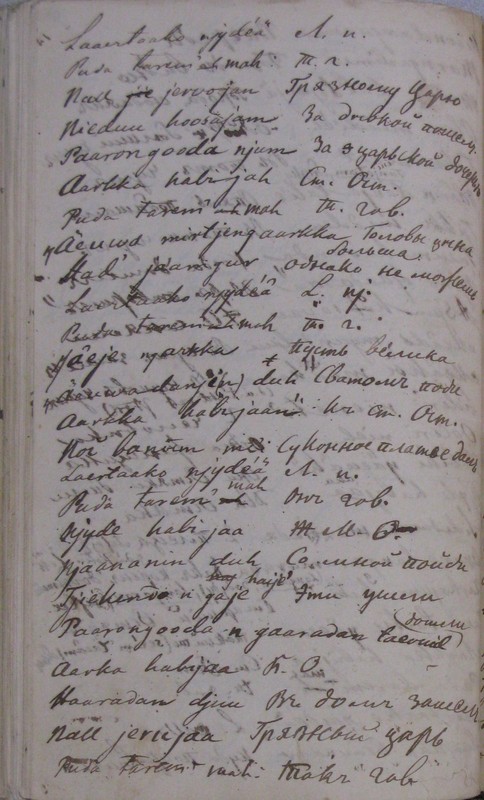 Laaertaako njydeä Л. н.
Puda tarem mah: Т. г.
Nall jervojan Грязному Царю
Nieduu hoosajam За дѣвкой пошелъ
Paarongooda njum За царьской дочерью
Aarkka habi jah Ст. Ост.
Puda tarem mah Т. гов.
Äeuwa mirtjengaarkka Головы цѣна больша
Had' jäämgur однако не можешь
Laaertaako njydeä L. nj.
Puda tarem mah т. г.
Näeje njarkka пусть велика
Ääuwa duh Сватомъ поди
Aarkka habi jaan къ ст. Ост.
Noi banum Суконное платье дамъ
Laertaako njydeä Л. н.
Puda tarem' mah онъ гов.
Njyde habi jaa М. О.
Njaananin duh Со мной пойди
gaje haije Эти ушли
Paarongooda n gaaradan дошли
Aarka habijaa К. О.
Haaradan djuu Въ домъ зашелъ
Nall jerujaa Грязный царь
Puda tarem mah: Такъ гов.